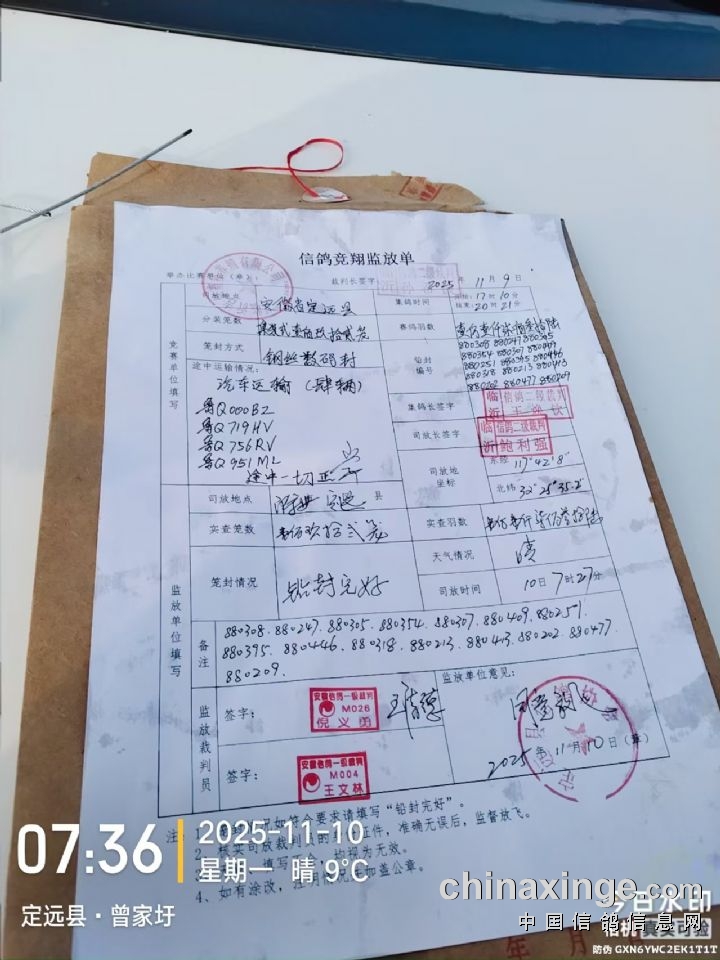 信鸽竞翔监放单
举办比赛单位(章):
裁判长签字
2025年11月9日
竞赛单位填写
司放地点 安徽省定远县 集鸽时间 开始:17时10分
结束:20时21分
分装笼数 赛鸽羽数
笼封方式 钢丝数码封 铅封编号
880308 880247 880305
880354 880307 880409
880251 880395 880446
880318 880213 880413
880202 880477 880209
途中运输情况:
汽车运输(肆辆)
鲁Q000BZ
鲁Q719HV
鲁Q756RV
鲁Q951ML
途中一切正常
集鸽长签字
临沂 信鸽二级裁判
司放长签字
临沂 信鸽二级裁判 鲍利强
司放地坐标 东经 117°42′8″
北纬 32°25′35.2″
监放单位填写
司放地点 定远县
实查笼数 壹佰玖拾贰笼 实查羽数
笼封情况 铅封完好 天气情况 晴
司放时间 10日7时27分
备注
880308.880247.880305.880354.880307.880409.880251.
880395.880446.880318.880213.880413.880202.880477.
880209.
监放裁判员
签字: 安徽信鸽一级裁判 M026 倪义勇
签字: 安徽信鸽一级裁判 M004 王文林
监放单位意见:
同意放飞
2025年11月10日(章)
注:
如符合要求请填写“铅封完好”。
2、核实司放裁判人的
证件,准确无误后,监督放飞。
填写
均视为无效。
4、如有涂改,注明情况并加盖公章。
07:36
2025-11-10
星期一 晴 9℃
定远县·曾家圩
chinaxinge.com
中国信鸽信息网
今日水印
相机 真实可验
防伪 GXN6YWC2EK1T1T
年 月